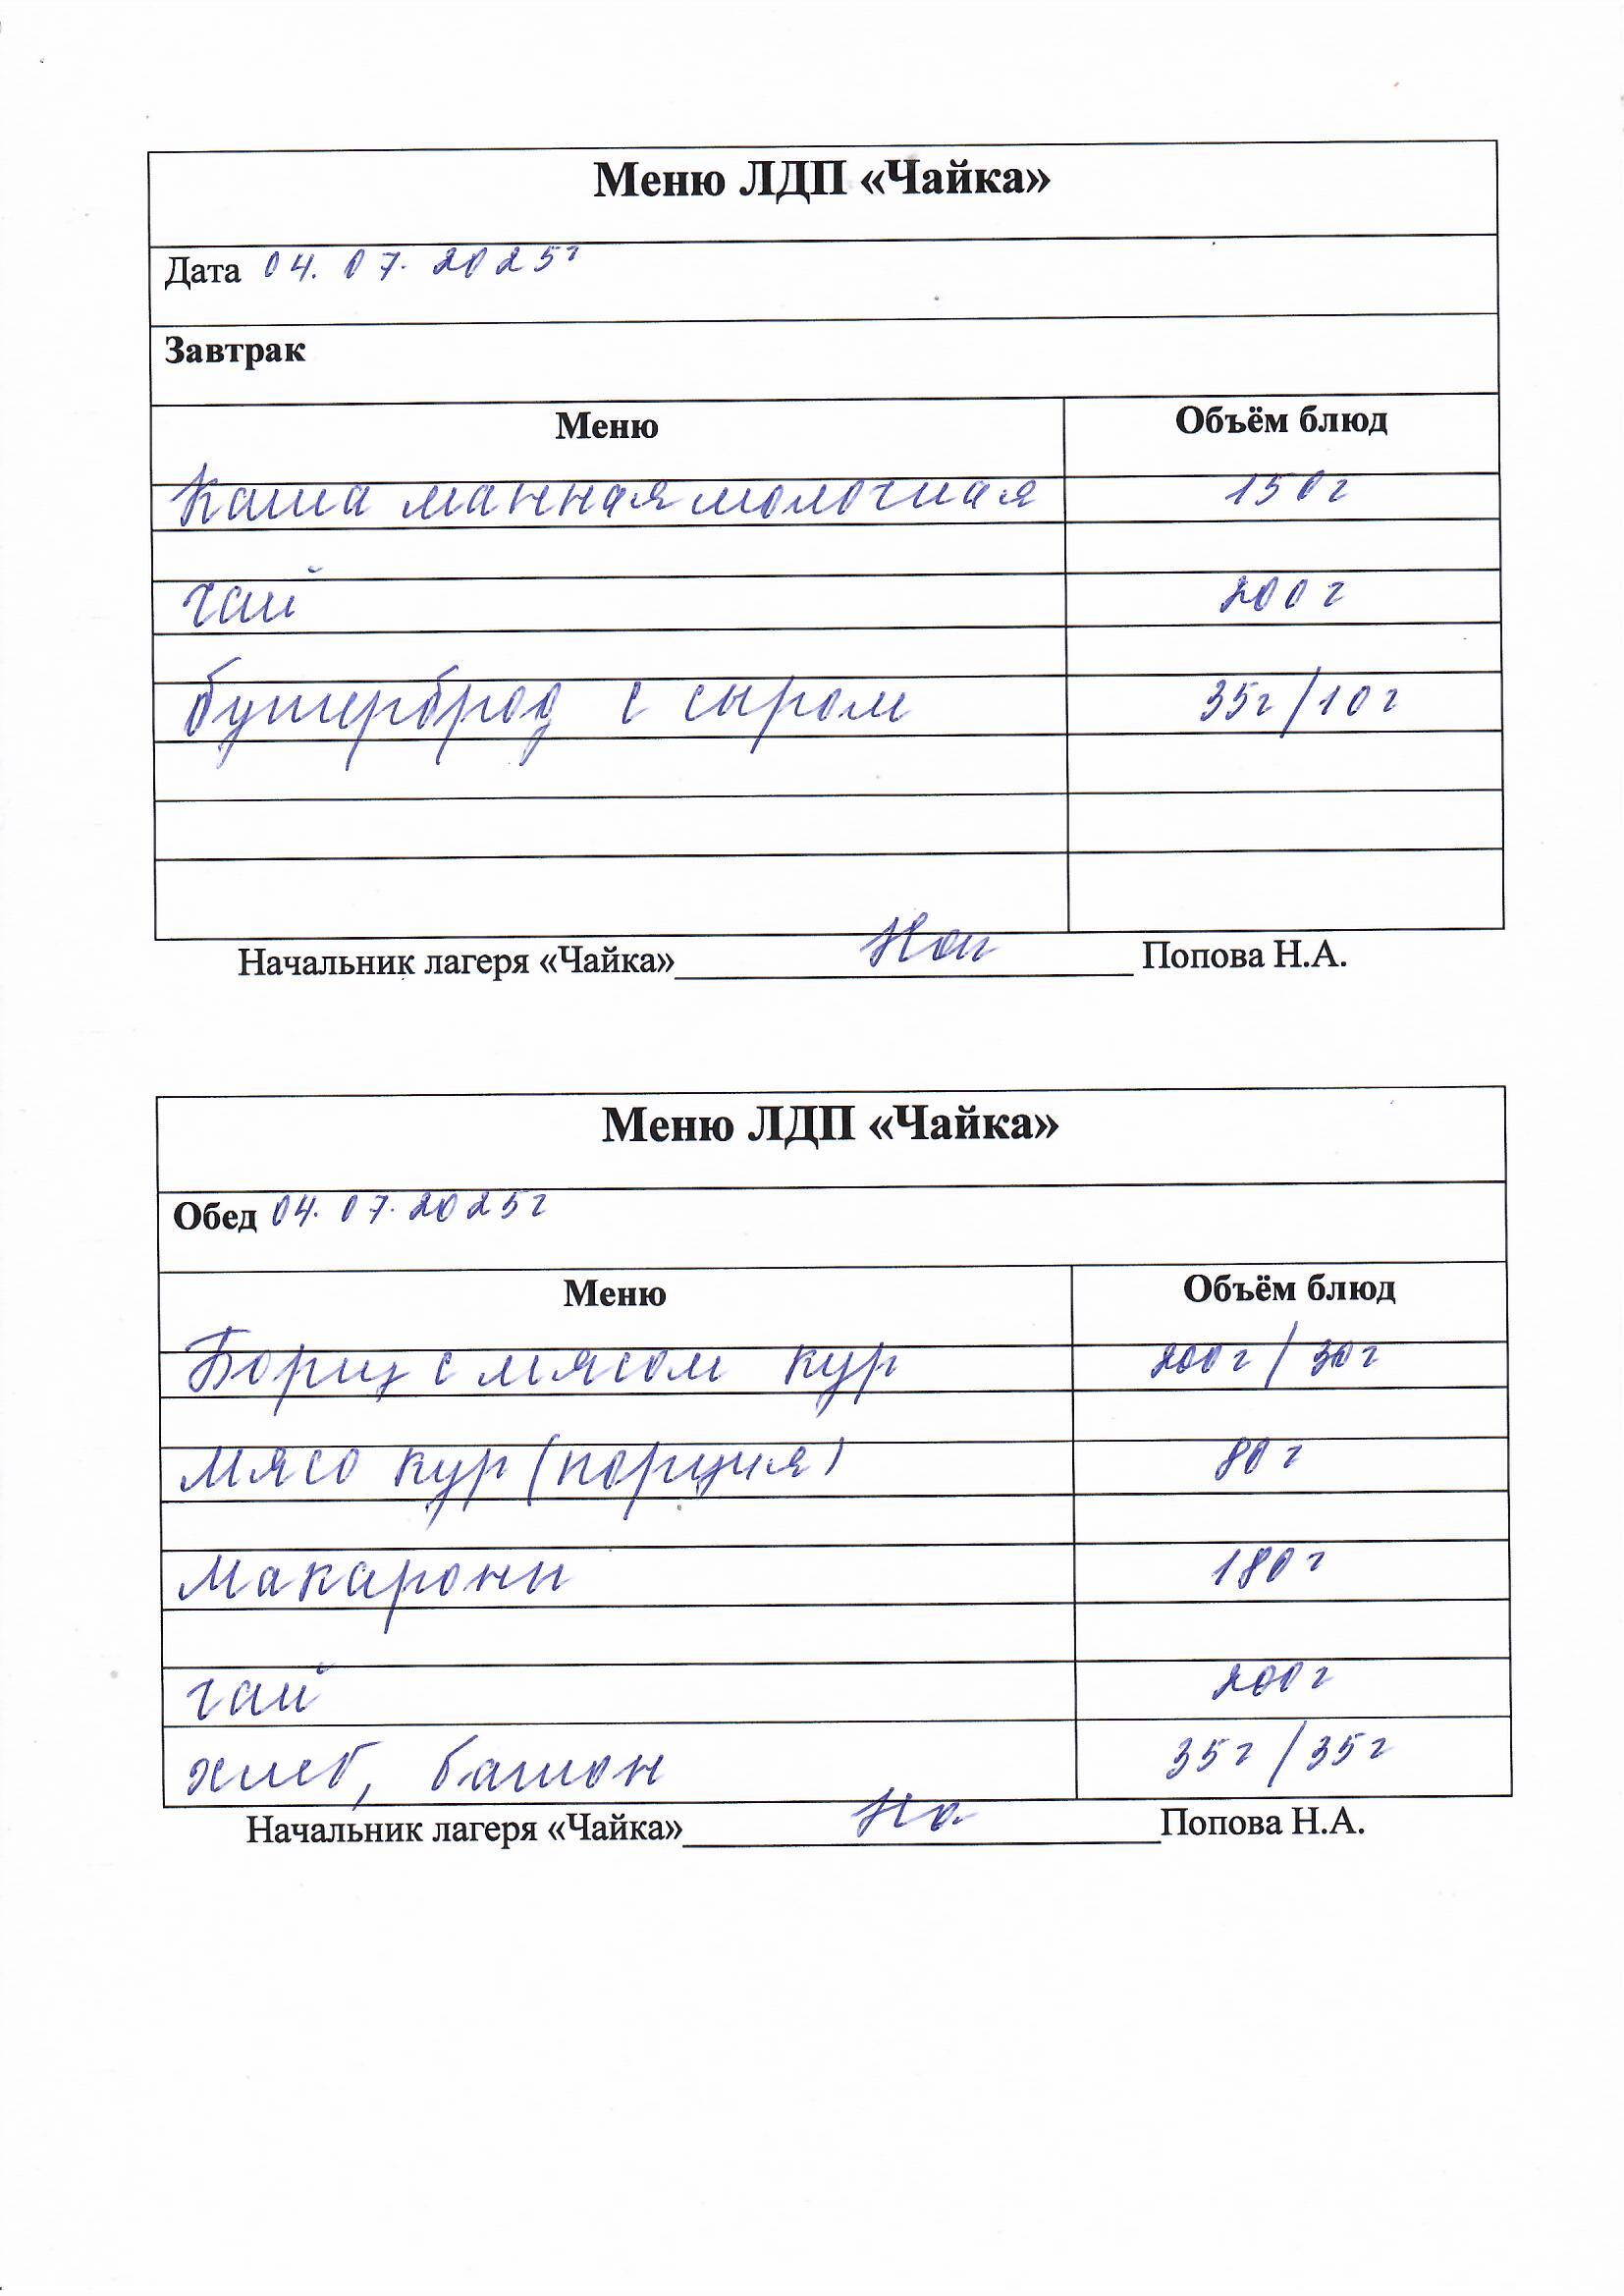 Меню ЛДП «Чайка»
Дата 04.07.2025г
Завтрак
Меню Объём блюд
Каша манная молочная 150г
чай 200г
бутерброд с сыром 35г/10г
Начальник лагеря «Чайка» Попова Н.А.
Меню ЛДП «Чайка»
Обед 04.07.2025г
Меню Объём блюд
Борщ с мясом кур 200г/30г
Мясо кур (порция) 80г
Макароны 180г
чай 200г
хлеб, батон 35г/35г
Начальник лагеря «Чайка» Попова Н.А.